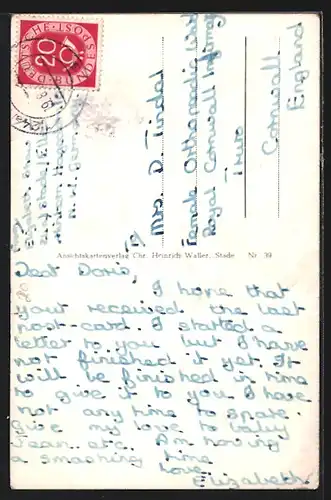 DEUTSCHE BUNDESPOST
20
Stade (Elbe)
To
Mrs. D. Tindal
Female Orthopaedic Ward
Royal Cornwall Infirmary
Truro
Cornwall
England
Ansichtskartenverlag Chr. Heinrich Waller, Stade Nr. 39
Dear Doris,
I hope that
your received the last
post-card. I started a
letter to you but I have
not finished it yet. It
will be finished in time
to give it to you. I have
not any time to spare.
Give my love to
Jean etc. Am having
a smashing time
Love
Elizabeth